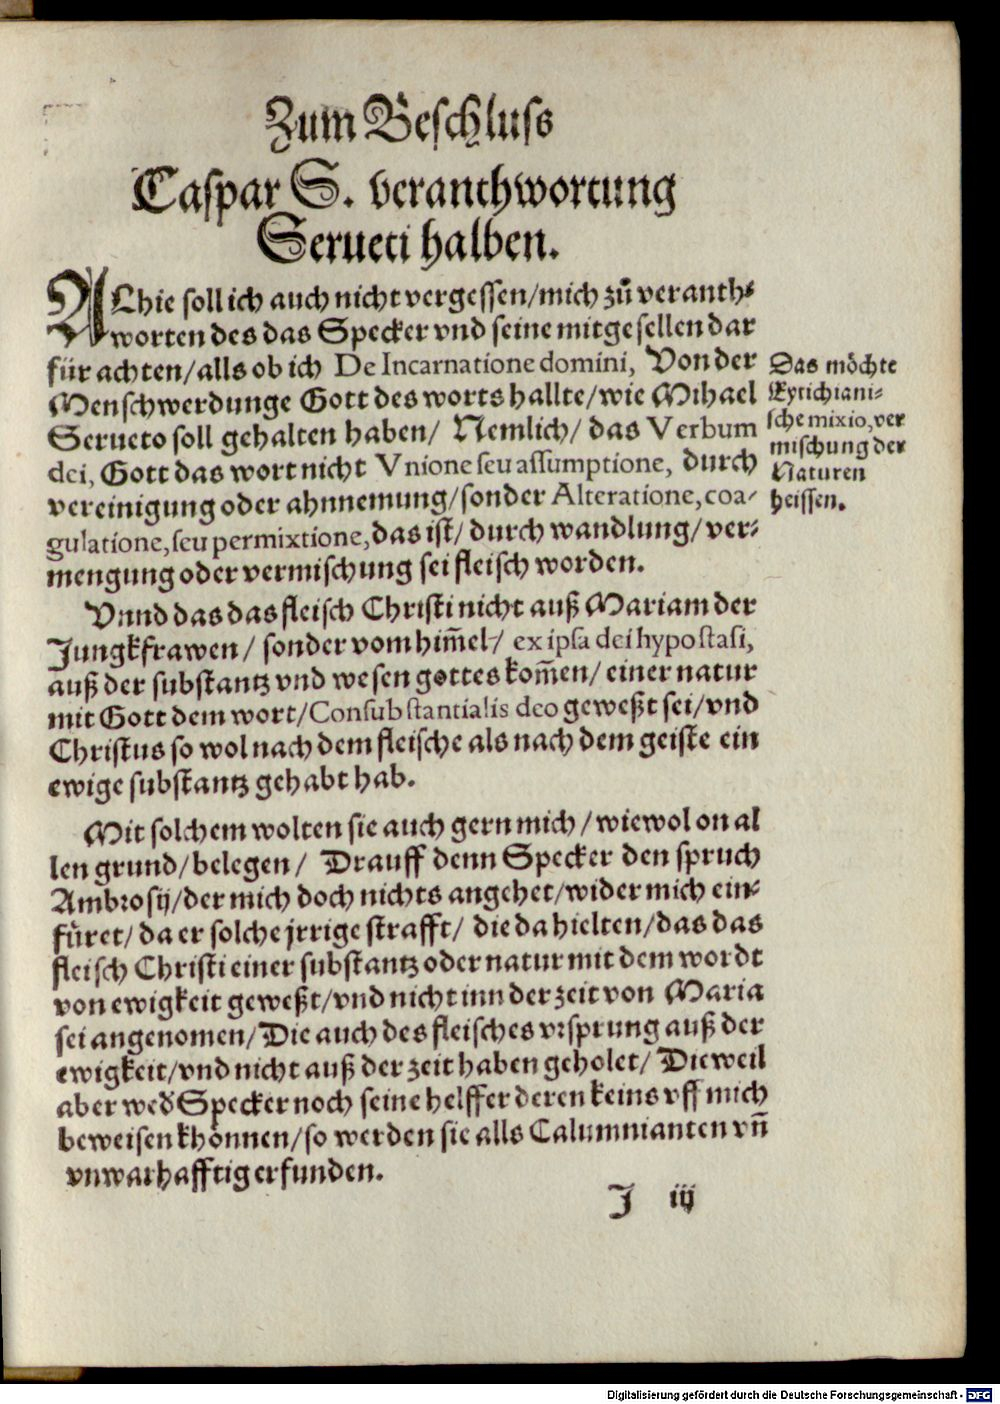 Zum Beschluss
Caspar S. veranthwortung
Serueti halben.
ALhie soll ich auch nicht vergessen/mich zů veranth-
worten des das Specker vnd seine mitgesellen dar
für achten/alls ob ich De Incarnatione domini, Von der
Menschwerdunge Gott des worts hallte/wie Mihael
Serueto soll gehalten haben/ Nemlich/ das Verbum
dei, Gott das wort nicht Vnione seu assumptione, durch
vereinigung oder ahnnemung/sonder Alteratione, coa-
gulatione, seu permixtione, das ist/ durch wandlung/ ver-
mengung oder vermischung sei fleisch worden.
Das möchte
Eytichiani-
sche mixio, ver
mischung der
Naturen
heissen.
Vnnd das das fleisch Christi nicht auß Mariam der
Jungkfrawen/ sonder vom him̃el/ ex ipsa dei hypostasi,
auß der substantz vnd wesen gottes kom̃en/ einer natur
mit Gott dem wort/Consubstantialis deo geweßt sei/vnd
Christus so wol nach dem fleische als nach dem geiste ein
ewige substantz gehabt hab.
Mit solchem wolten sie auch gern mich/wiewol on al
len grund/belegen/ Drauff denn Specker den spruch
Ambrosij/der mich doch nichts angehet/wider mich ein-
füret/ da er solche jrrige strafft/ die da hielten/das das
fleisch Christi einer substantz oder natur mit dem wordt
von ewigkeit geweßt/vnd nicht inn der zeit von Maria
sei angenomen/Die auch des fleisches vrsprung auß der
ewigkeit/vnd nicht auß der zeit haben geholet/ Dieweil
aber wed̃ Specker noch seine helffer deren keins vff mich
beweisen khönnen/so werden sie alls Calumnianten vn̄
vnwarhafftig erfunden.
J iij
Digitalisierung gefördert durch die Deutsche Forschungsgemeinschaft - DFG